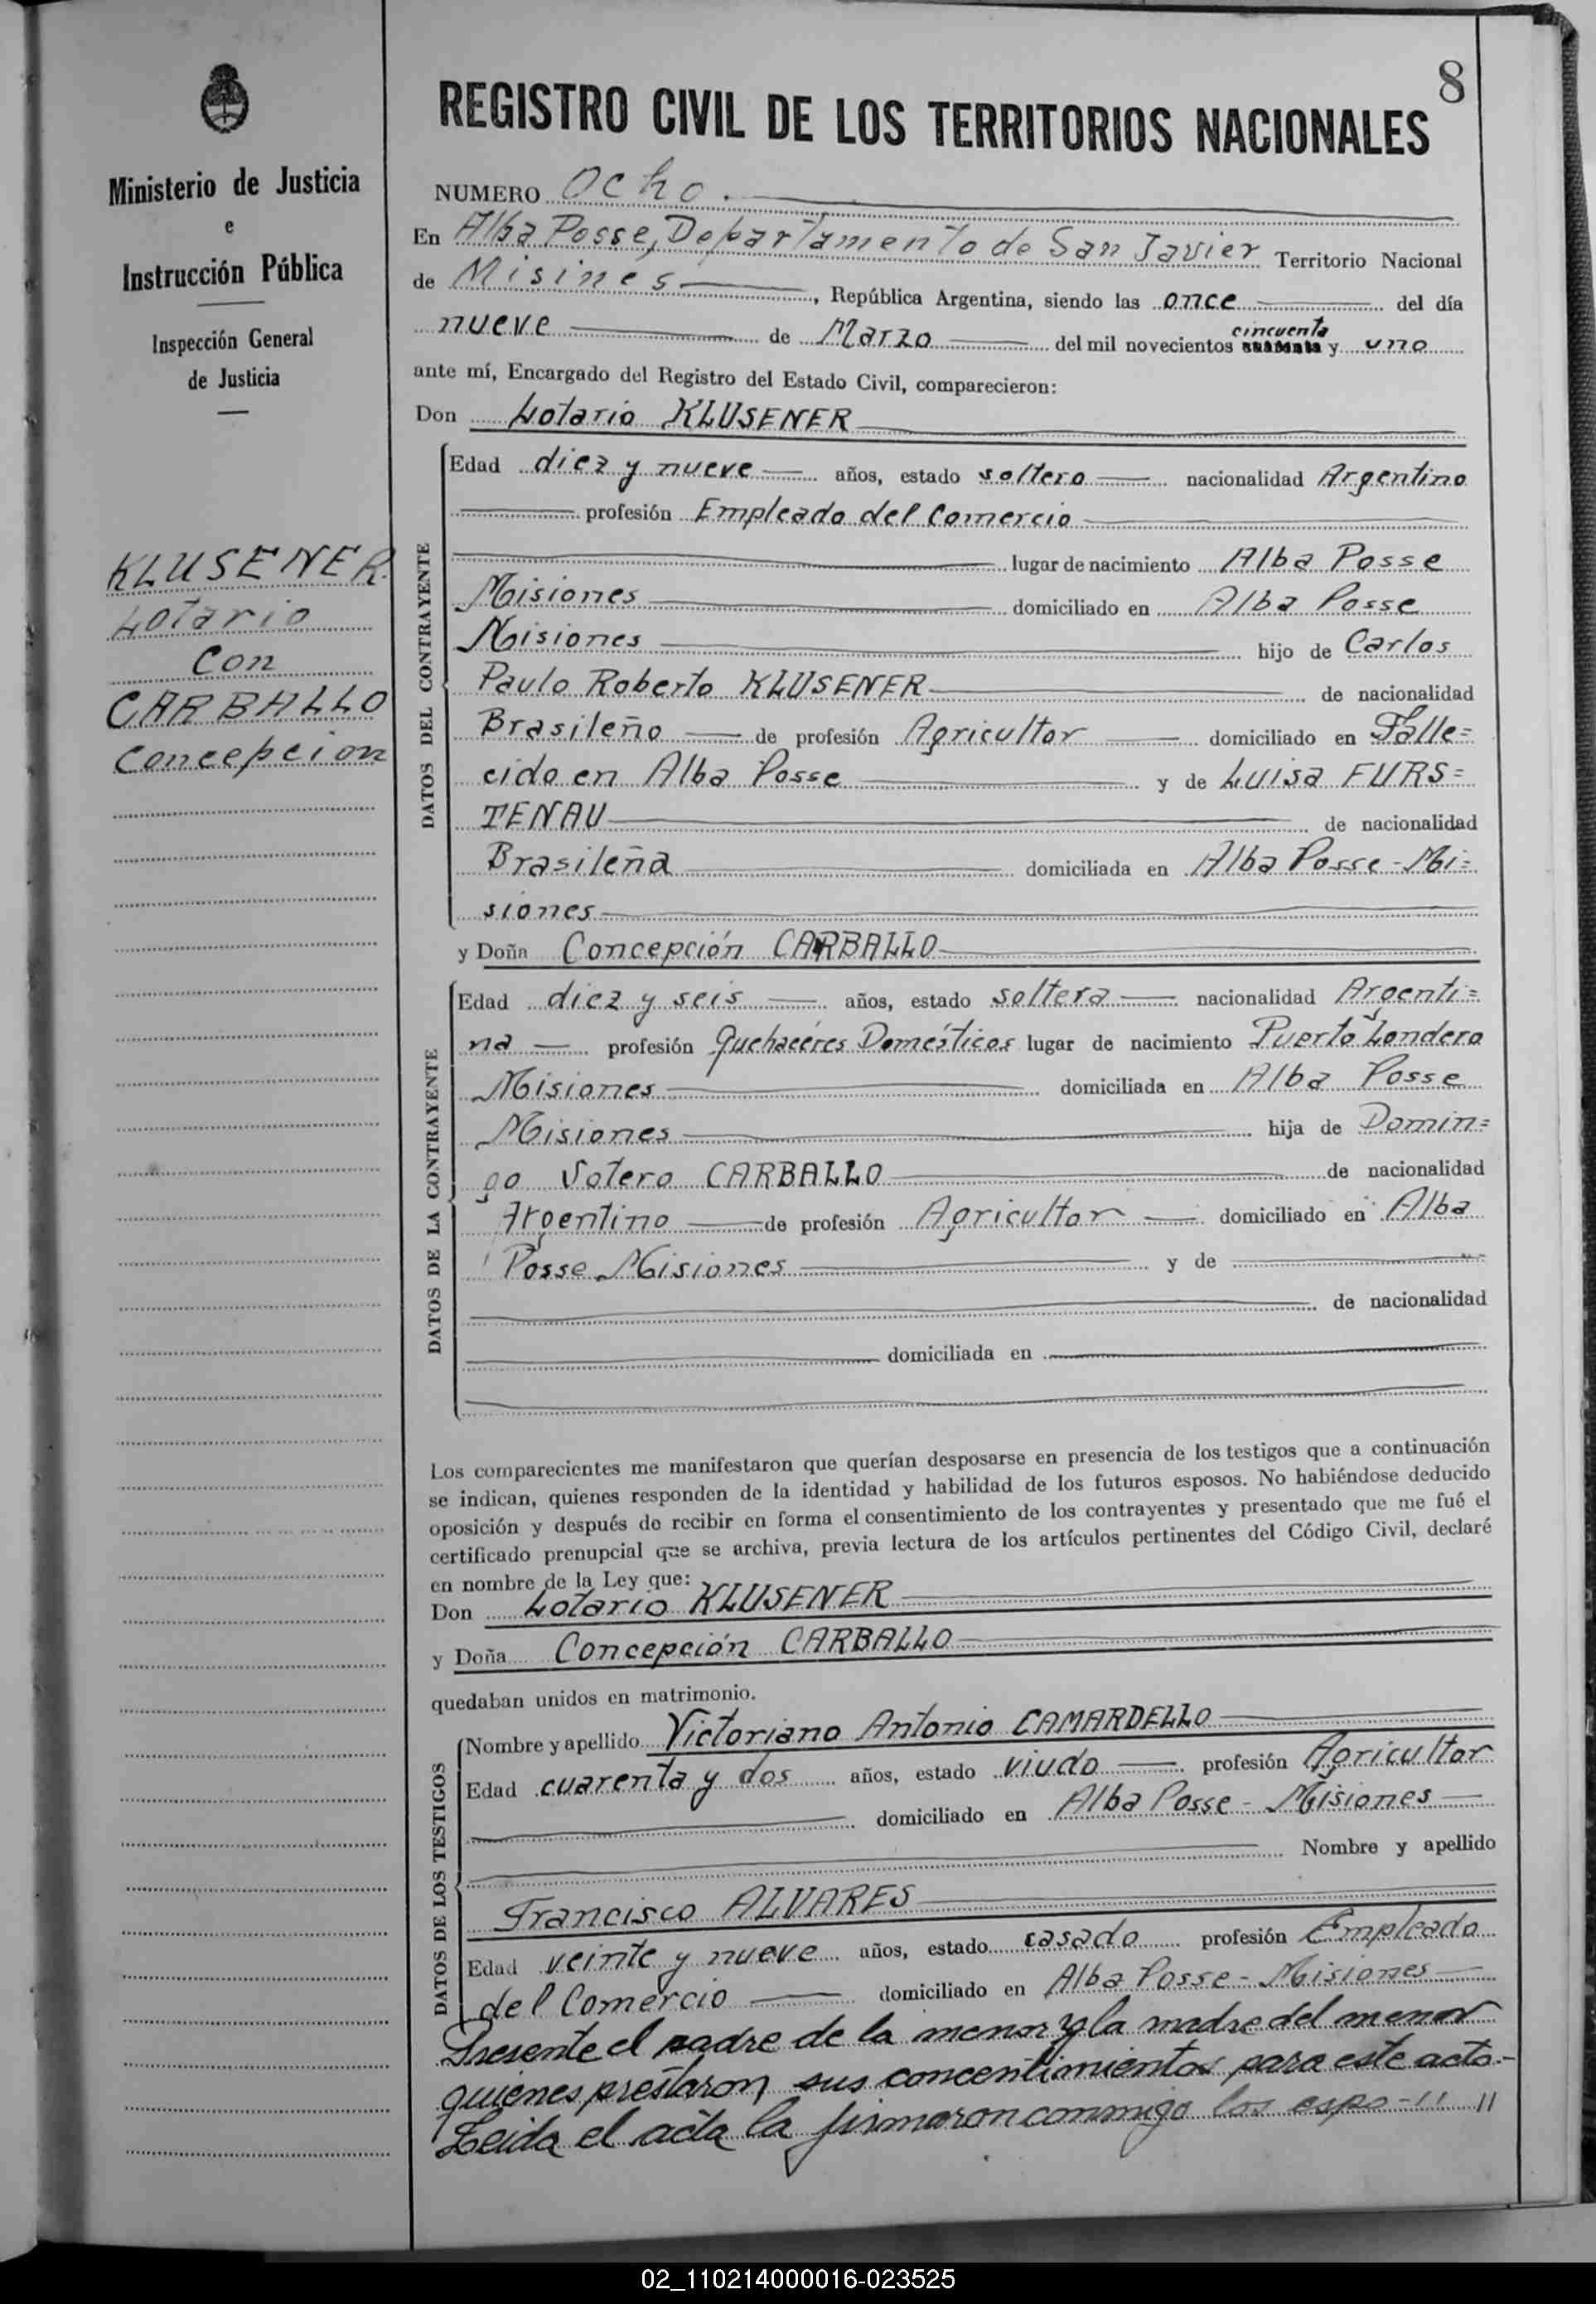 8
Ministerio de Justicia
e
Instrucción Pública
Inspección General
de Justicia
KLUSENER
Lotario
Con
CARBALLO
Concepcion
REGISTRO CIVIL DE LOS TERRITORIOS NACIONALES
NUMERO Ocho.
En Alba Posse, Departamento de San Javier Territorio Nacional
de Misines, República Argentina, siendo las once del día
cincuenta
nueve de Marzo del mil novecientos y uno
ante mí, Encargado del Registro del Estado Civil, comparecieron:
Don Lotario KLUSENER
DATOS DEL CONTRAYENTE
Edad diez y nueve años, estado soltero nacionalidad Argentino
profesión Empleado del Comercio
lugar de nacimiento Alba Posse
Misiones domiciliado en Alba Posse
Misiones hijo de Carlos
Paulo Roberto KLUSENER de nacionalidad
Brasileño de profesión Agricultor domiciliado en Falle=
cido en Alba Posse y de Luisa FURS=
TENAU de nacionalidad
Brasileña domiciliada en Alba Posse - Mi=
siones
y Doña Concepción CARBALLO
DATOS DE LA CONTRAYENTE
Edad diez y seis años, estado soltera nacionalidad Argenti=
na profesión Quehaceres Domésticos lugar de nacimiento Puerto Londero
Misiones domiciliada en Alba Posse
Misiones hija de Domin=
go Sotero CARBALLO de nacionalidad
Argentino de profesión Agricultor domiciliado en Alba
Posse Misiones y de
de nacionalidad
domiciliada en
Los comparecientes me manifestaron que querían desposarse en presencia de los testigos que a continuación
se indican, quienes responden de la identidad y habilidad de los futuros esposos. No habiéndose deducido
oposición y después de recibir en forma el consentimiento de los contrayentes y presentado que me fué el
certificado prenupcial que se archiva, previa lectura de los artículos pertinentes del Código Civil, declaré
en nombre de la Ley que:
Don Lotario KLUSENER
y Doña Concepción CARBALLO
quedaban unidos en matrimonio.
DATOS DE LOS TESTIGOS
Nombre y apellido Victoriano Antonio CAMARDELLO
Edad cuarenta y dos años, estado viudo profesión Agricultor
domiciliado en Alba Posse - Misiones
Nombre y apellido
Francisco ALVARES
Edad veinte y nueve años, estado casado profesión Empleado
del Comercio domiciliado en Alba Posse - Misiones
Presente el padre de la menor y la madre del menor
quienes prestaron sus concentimientos para este acto.-
Leida el acta la firmaron conmigo los espo-// //
02_110214000016-023525